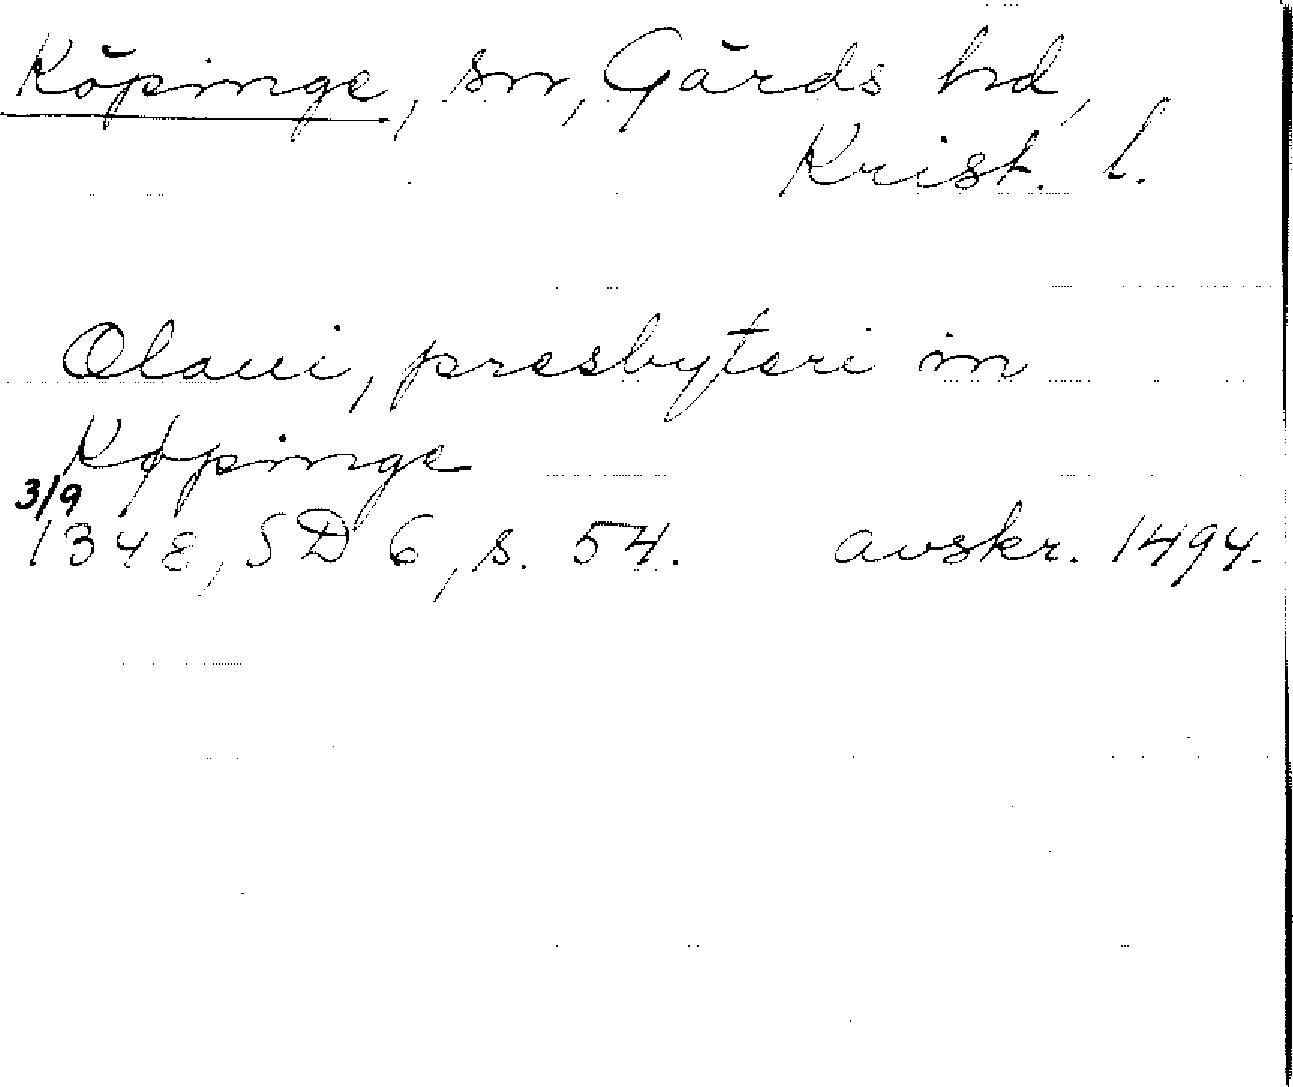 Köpinge, sn, Gärds hd,
Krist. l.
Olaui, presbyteri in
Køpinge
3/9
1348, SD 6, s. 54. avskr. 1494.